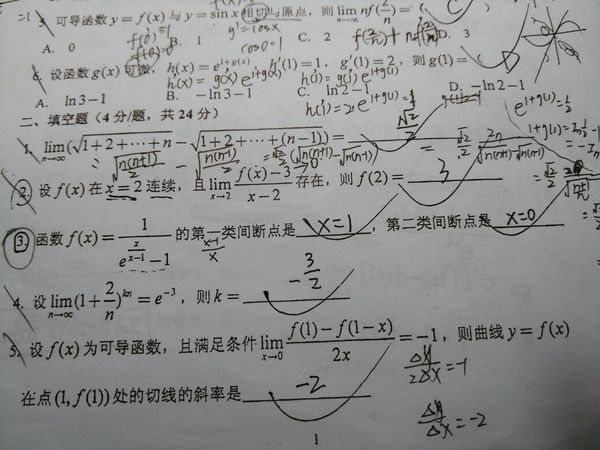 5. 可导函数 y = f(x) 与 y = sin x 相切与原点，则 lim n→∞ nf(2/n) = ( C )
A. 0 B. 1 C. 2 D. 3
f(0)=1 g'=cosx cos0=1
6. 设函数 g(x) 可微，h(x) = e^{1+g(x)} h'(1) = 1, g'(1) = 2, 则 g(1) = (
h'(x)=g'(x)e^{1+g(x)} h'(1)=g'(1)e^{1+g(1)}
A. ln3−1 B. −ln3−1 C. ln2−1 D. −ln2−1
e^{1+g(1)}=1/2
1+g(1)=ln 1/2
二、填空题（4 分/题，共 24 分）
1. lim n→∞ (√(1+2+⋯+n) − √(1+2+⋯+(n−1))) = √2/2
2. 设 f(x) 在 x = 2 连续，且 lim x→2 (f(x)−3)/(x−2) 存在，则 f(2) = 3
3. 函数 f(x) = 1/(e^{x/(x−1)}−1) 的第一类间断点是 x=1 ，第二类间断点是 x=0 。
x−1/x
4. 设 lim n→∞ (1+2/n)^{kn} = e^{−3}，则 k = −3/2
5. 设 f(x) 为可导函数，且满足条件 lim x→0 (f(1)−f(1−x))/2x = −1，则曲线 y = f(x)
在点 (1, f(1)) 处的切线的斜率是 −2
Δy/2Δx=−1
Δy/Δx=−2
1